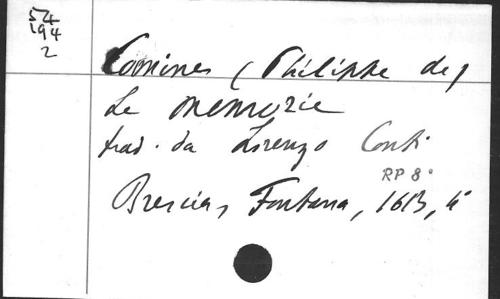 54
194
2
Comines (Philippe de)
Le memorie
trad. da Lorenzo Conti
RP 8°
Brescia, Fontana, 1613, 4°